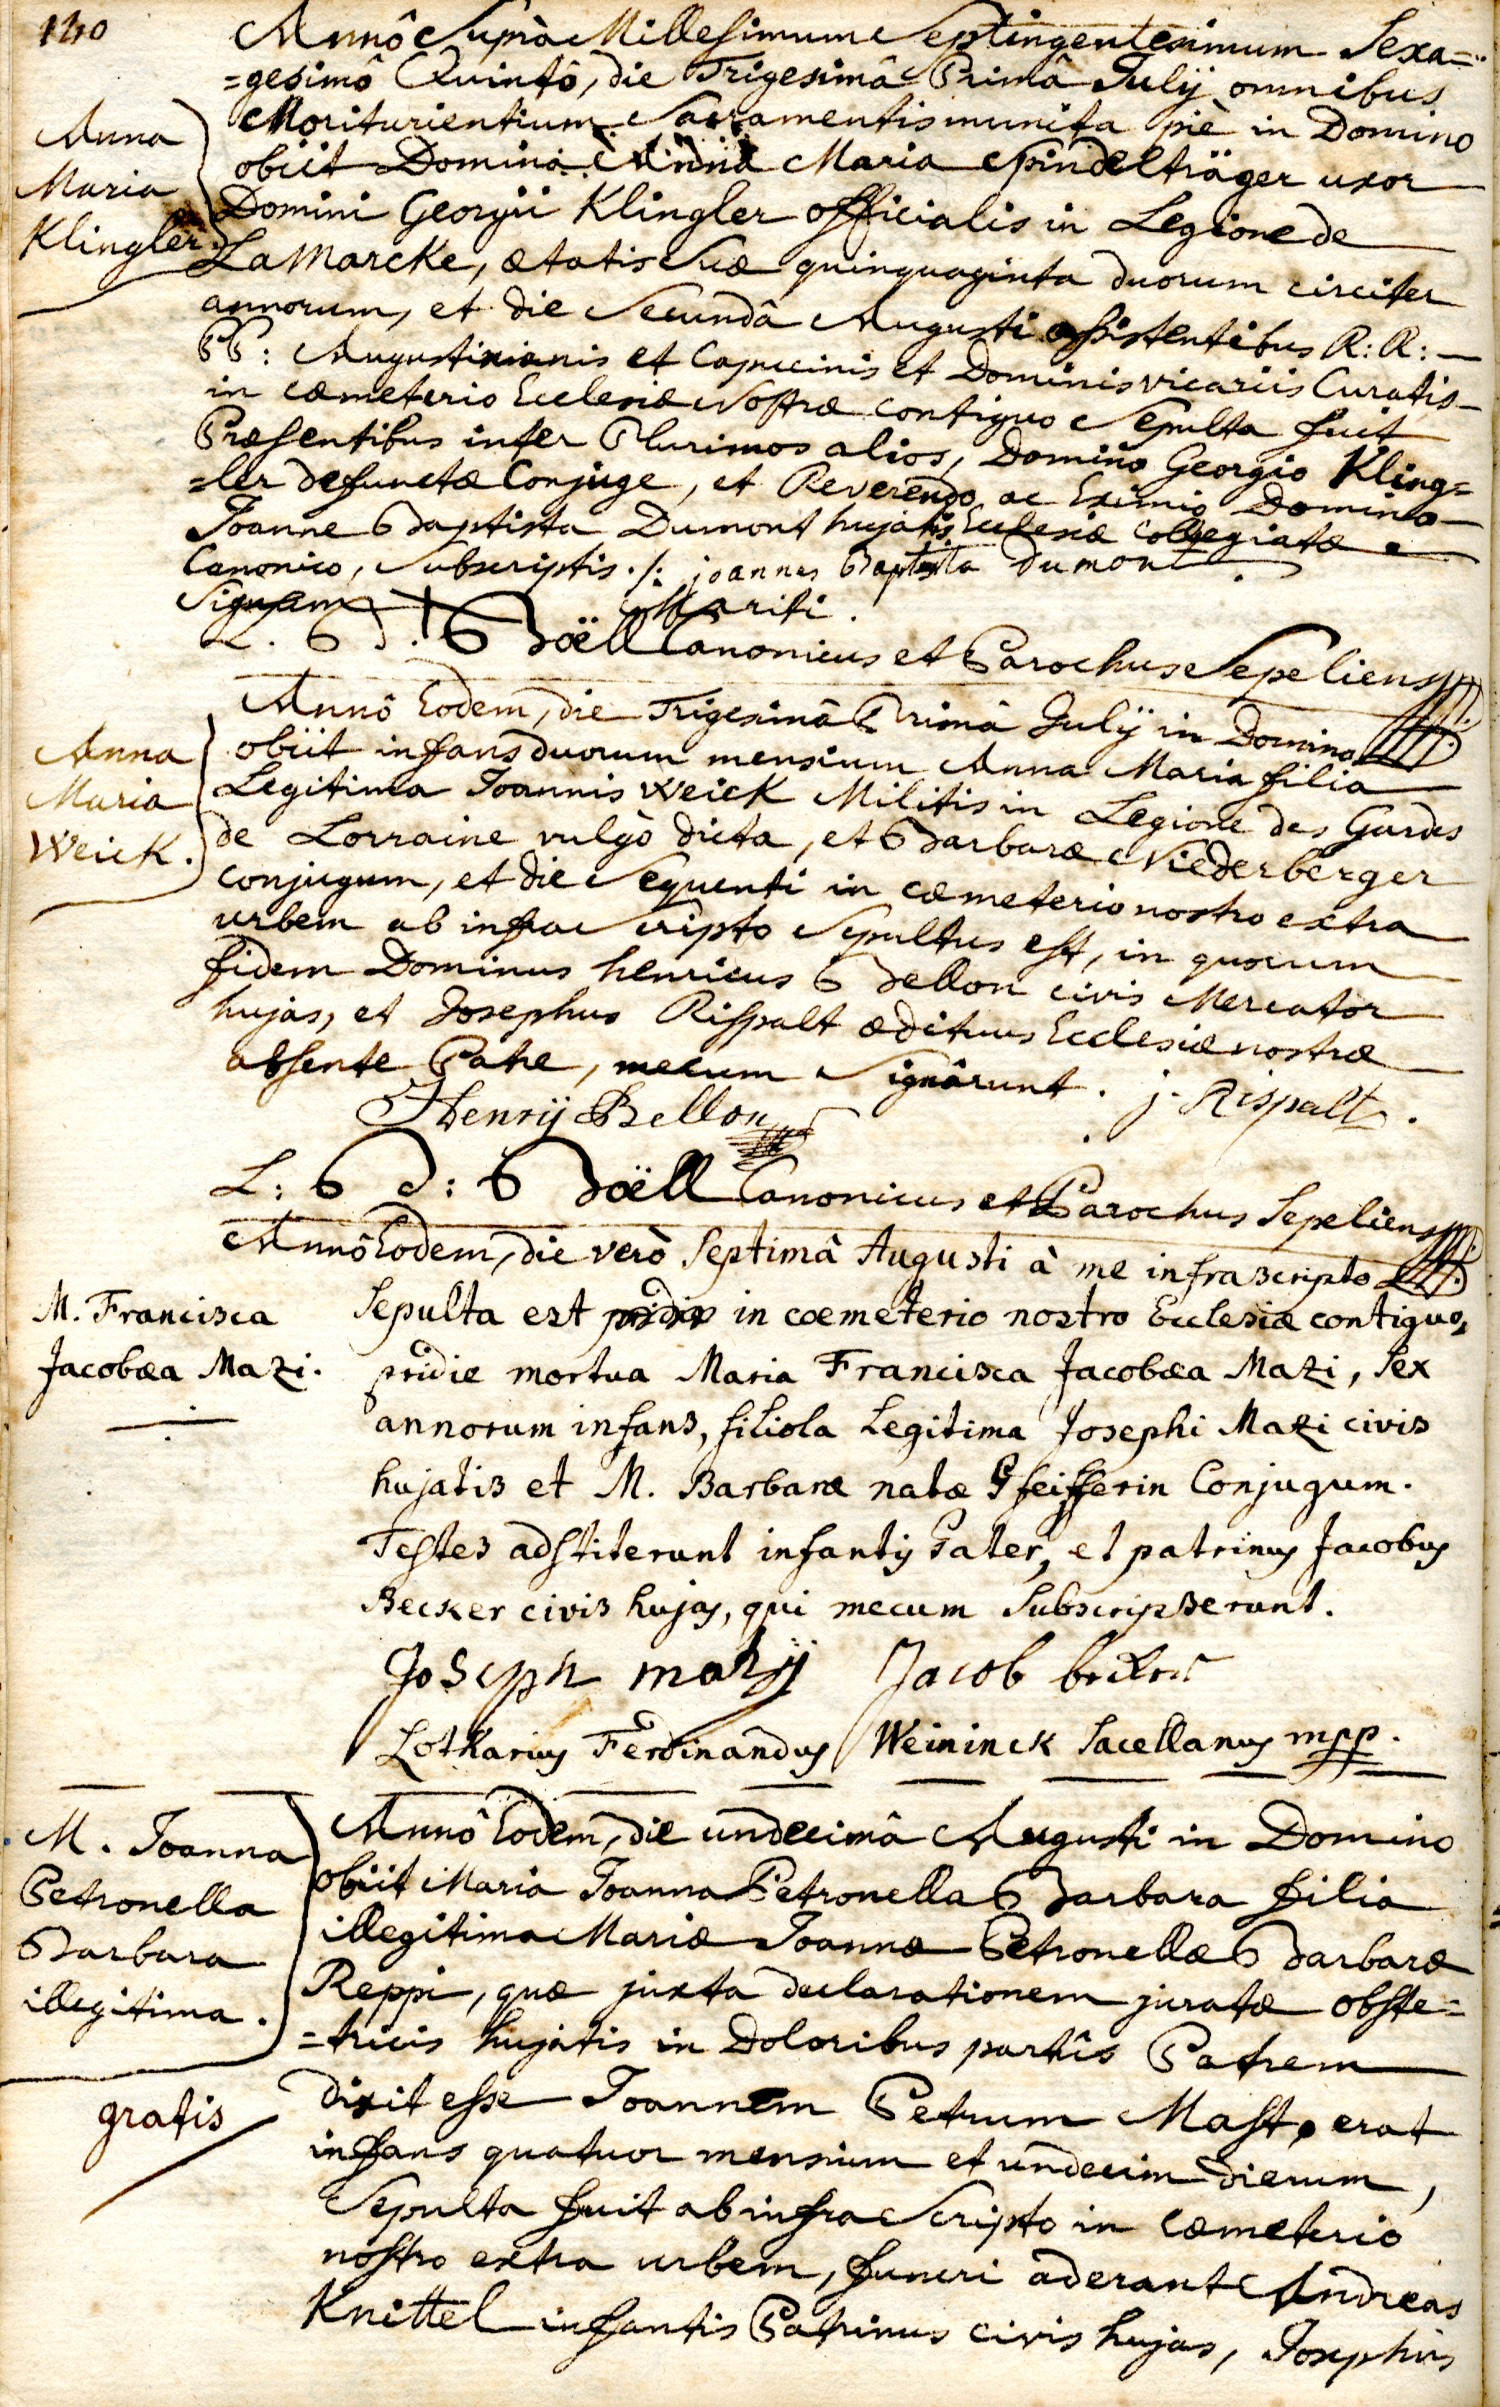 140
Annô Suprà Millesimum Septingentesimum Sexa=
=gesimô Quintô, die Trigesimâ Primâ Julÿ omnibus
Moriturientium Sacramentis munita piè in Domino
obiit Domina Anna Maria Spindelträger uxor
Domini Georgii Klingler officialis in Legione de
La Marcke, ætatis Suæ quinquaginta duorum circiter
annorum, et die Secundâ Augusti assistentibus R: R:
PP: Augustinianis et Capucinis et Dominis vicariis Curatis
in cæmeterio Ecclesiæ Nostræ contiguo Sepulta fuit
Præsentibus inter Plurimos alios, Domino Georgio Kling=
=ler defunctæ Conjuge, et Reverendo ac Eximio Domino
Joanne Baptista Dumont hujatis Ecclesiæ Collegiatæ
Canonico, Subscriptis ./. joannes Baptista dumont
Signum + Mariti.
L. B J. B Boëll Canonicus et Parochus Sepeliens
Anna
Maria
Klingler.
Annô Eodem, die Trigesimâ Primâ Julÿ in Domino
obiit infans duorum mensium Anna Maria filia
Legitima Joannis Weick Militis in Legione des Gardes
de Lorraine vulgò dicta, et Barbaræ Niederberger
conjugum, et die Sequenti in cæmeterio nostro extra
urbem ab infra Scripto Sepultus est, in quorum
fidem Dominus henricus Bellon civis Mercator
hujas, et Josephus Rispalt ædituus Ecclesiæ nostræ
absente Patre, mecum Signârunt. j. Rispalt.
Henrÿ Bellon
L: B J: B Boëll Canonicus et Parochus Sepeliens
Anna
Maria
Weick.
Annô Eodem, die verò Septimâ Augusti à me infrascripto
Sepulta est pridie in coemeterio nostro Ecclesiæ contiguo,
pridie mortua Maria Francisca Jacobæa Mazi, Sex
annorum infans, filiola Legitima Josephi Mazi civis
hujatis et M. Barbaræ natæ Pfeifferin Conjugum.
Testes adstiterunt infantis Pater, et patrinus Jacobus
Becker civis hujas, qui mecum Subscripserunt.
Joseph mazÿ Jacob
Lotharius Ferdinandus Weininck Sacellanus mpp.
M. Francisca
Jacobæa Mazi.
Annô Eodem, die undecimâ Augusti in Domino
obiit Maria Joanna Petronella Barbara filia
illegitima Mariæ Joannæ Petronellæ Barbaræ
Reppi, quæ juxta declarationem juratæ obste=
=tricis hujatis in Doloribus partûs Patrem
dixit esse Joannem Petrum Mast, erat
infans quatuor mensium et undecim dierum,
Sepulta fuit ab infra Scripto in cæmeterio
nostro extra urbem, funeri aderant Andreas
Knittel infantis Patrinus civis hujas, Josephus
M. Joanna
Petronella
Barbara
illegitima.
gratis